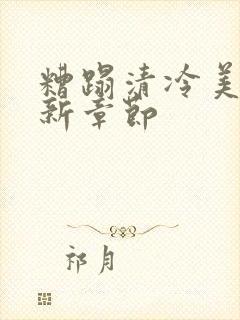 糟蹋清冷美
新章节
祁月